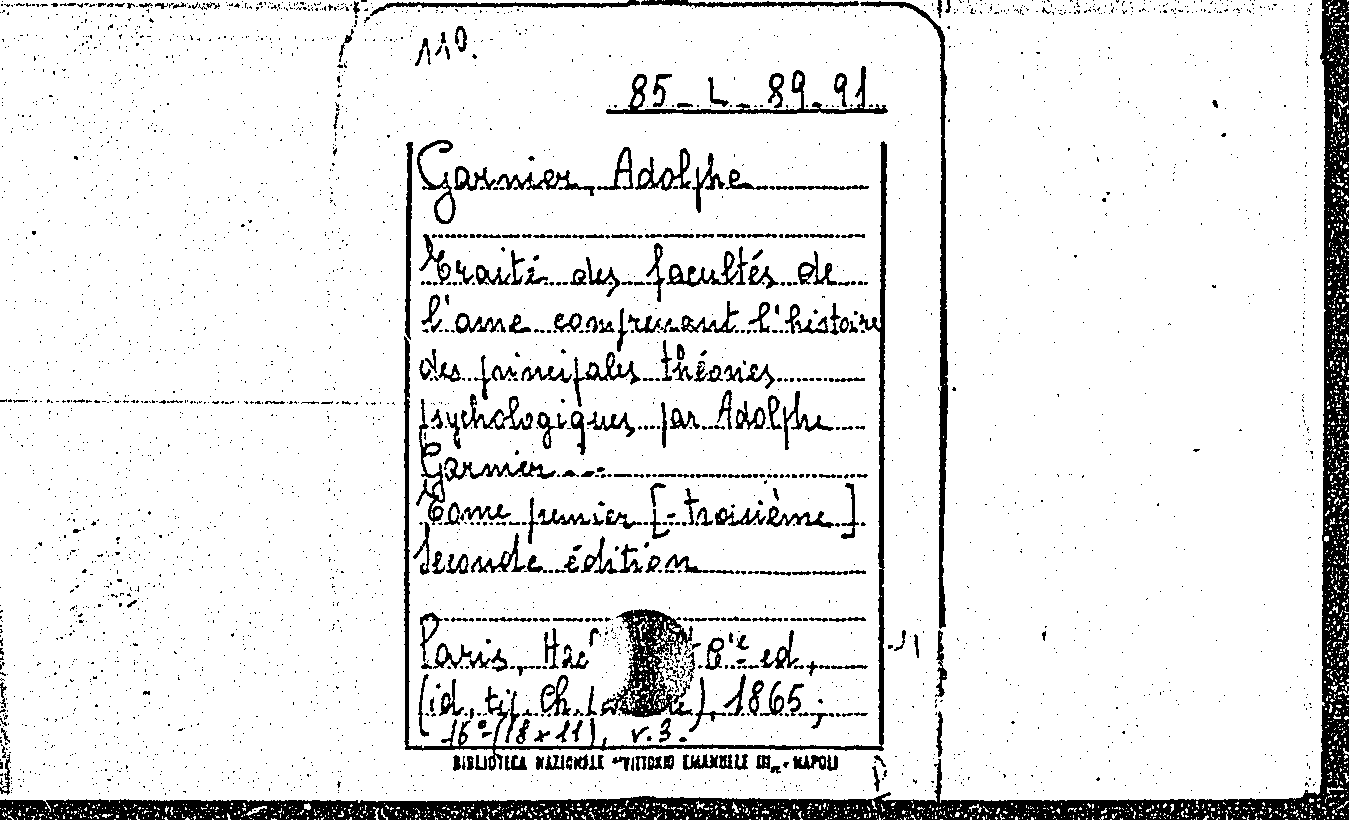 110.
85 - L - 89 - 91
Garnier, Adolphe
Traité des facultés de
l'ame comprenant l'histoire
des principales théories
psychologiques par Adolphe
Garnier ...
Tome premier [- troisième]
Seconde édition
Paris, C.ie ed.,
(id., tip. Ch. 1865;
16° (18 x 11), v. 3.
BIBLIOTECA NAZIONALE "VITTORIO EMANUELE III" - NAPOLI